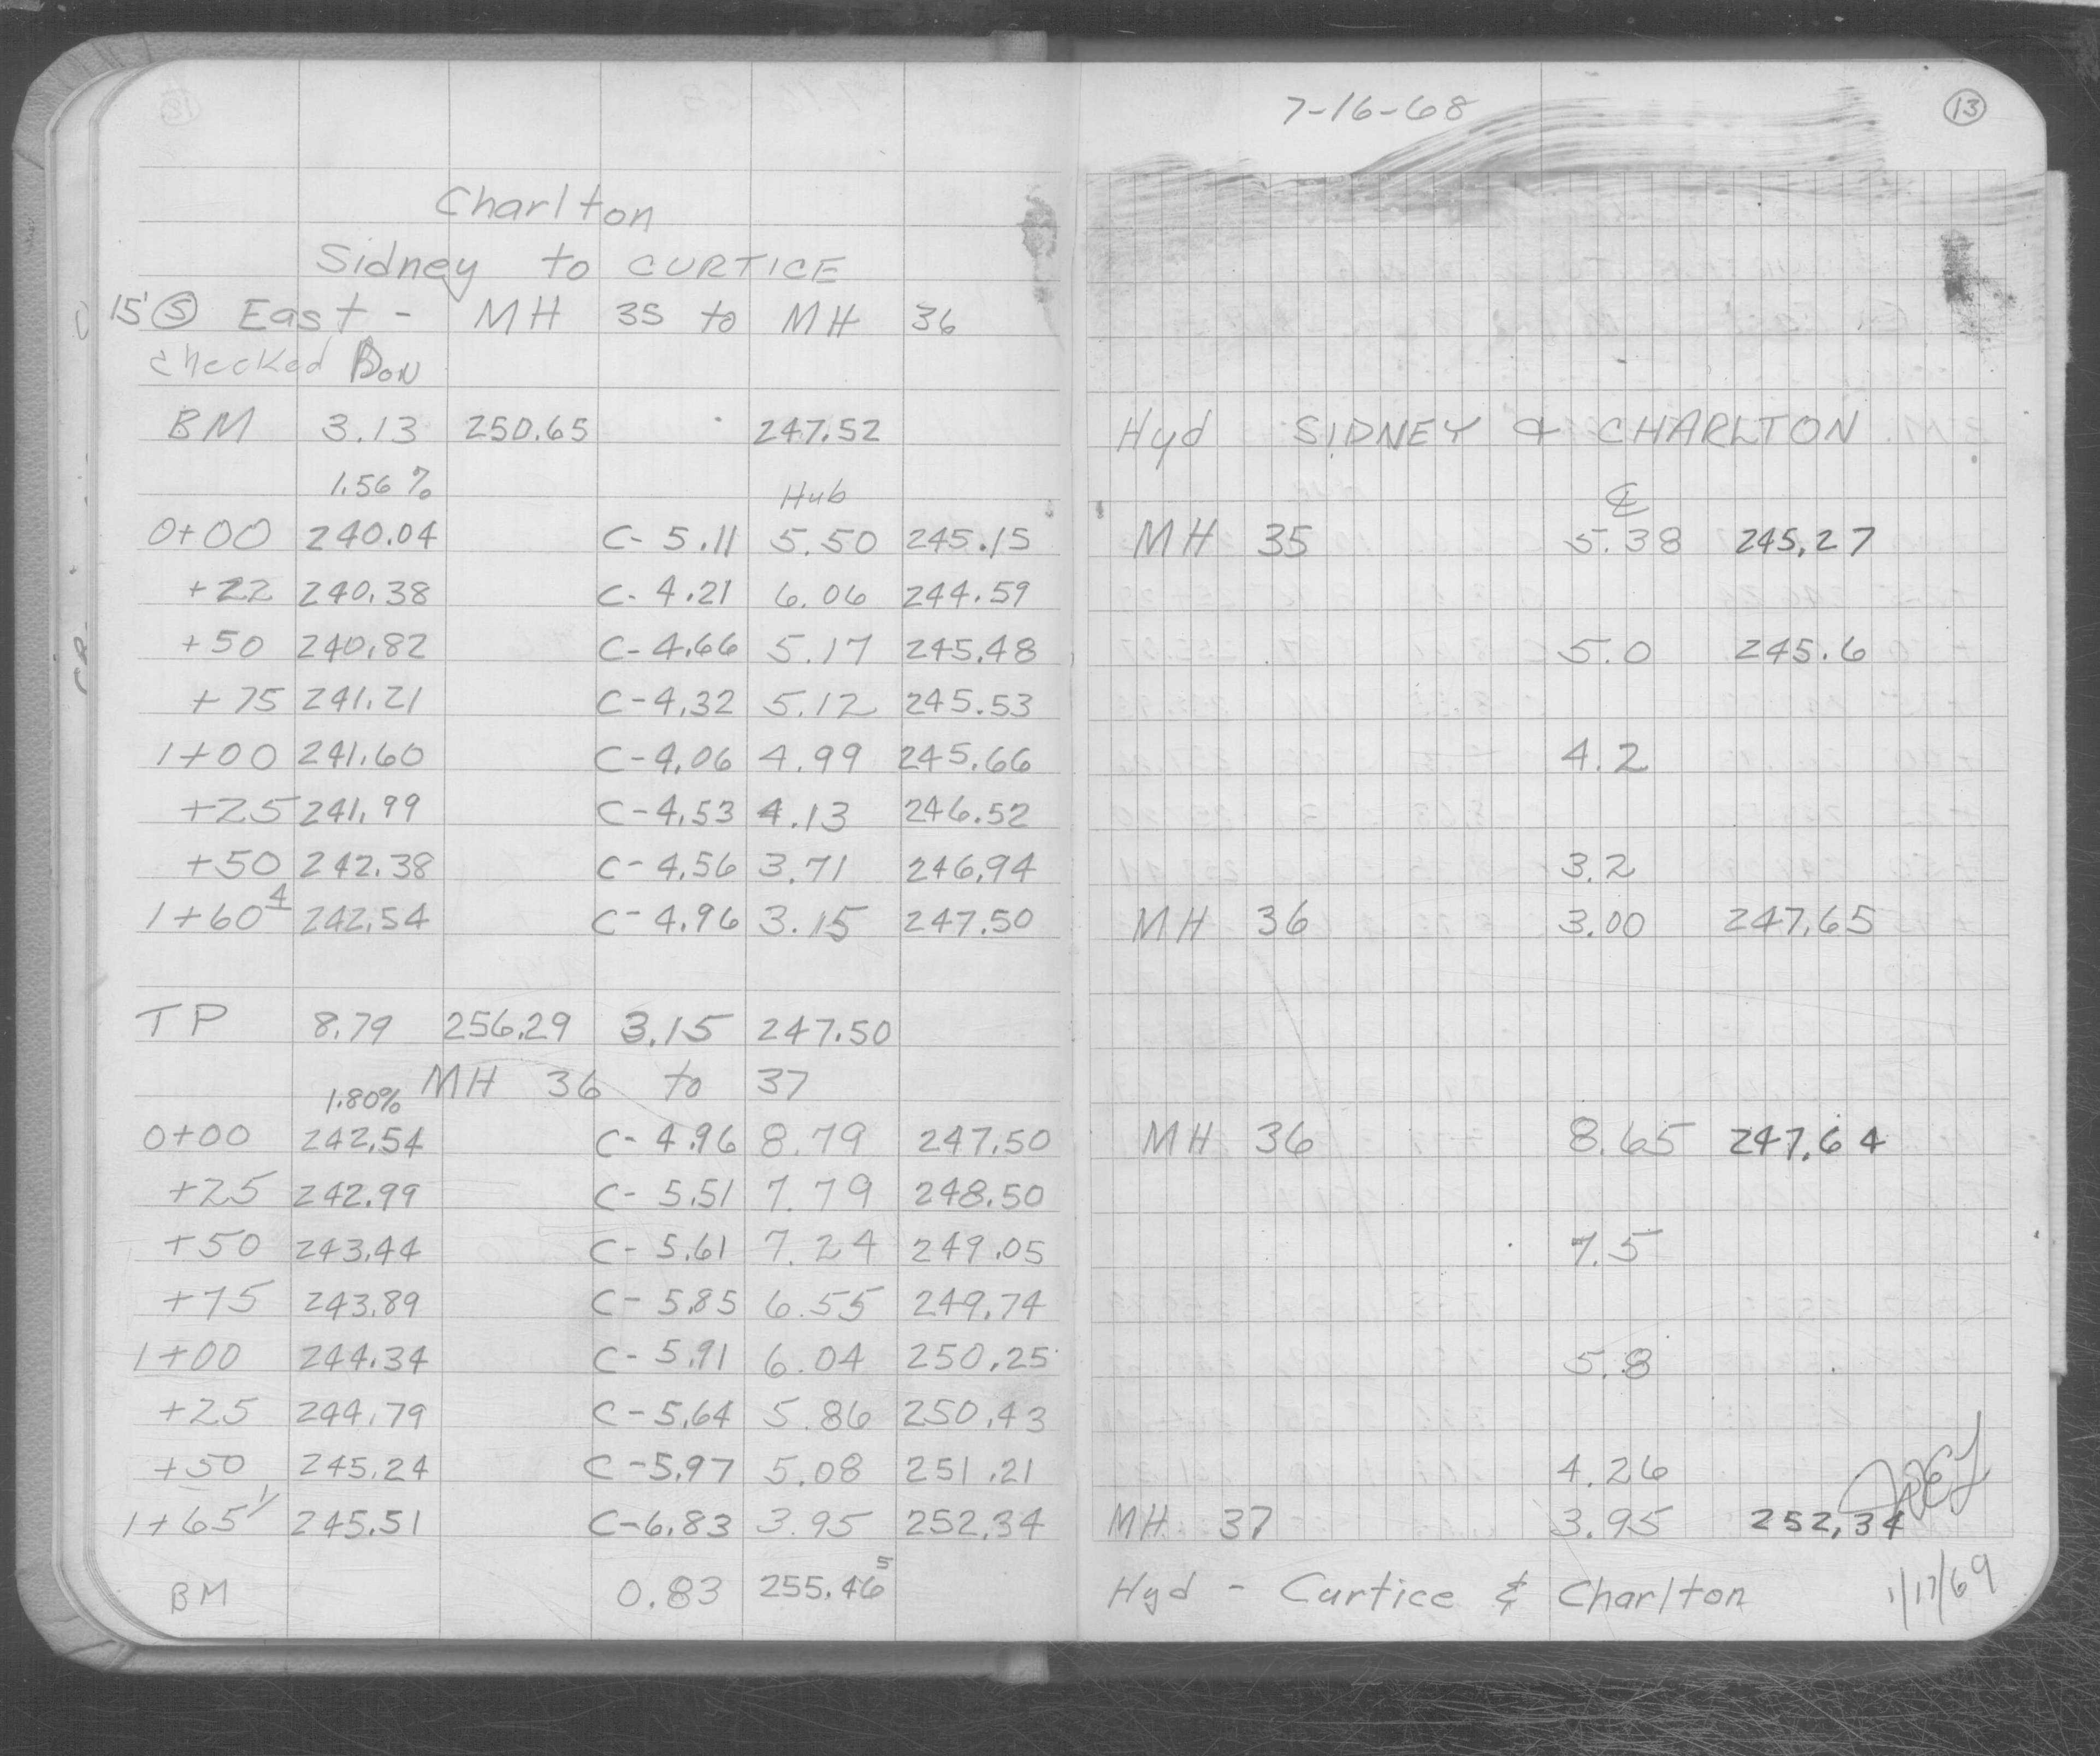 Charlton
Sidney to CURTICE
15' S East - MH 35 to MH 36
checked Don
BM 3.13 250.65 247.52
1.56% Hub
0+00 240.04 C- 5.11 5.50 245.15
+22 240.38 C- 4.21 6.06 244.59
+50 240.82 C- 4.66 5.17 245.48
+75 241.21 C- 4.32 5.12 245.53
1+00 241.60 C- 4.06 4.99 245.66
+25 241.99 C- 4.53 4.13 246.52
+50 242.38 C- 4.56 3.71 246.94
1+60 4 242.54 C- 4.96 3.15 247.50
TP 8.79 256.29 3.15 247.50
MH 36 to 37
1.80%
0+00 242.54 C- 4.96 8.79 247.50
+25 242.99 C- 5.51 7.79 248.50
+50 243.44 C- 5.61 7.24 249.05
+75 243.89 C- 5.85 6.55 249.74
1+00 244.34 C- 5.91 6.04 250.25
+25 244.79 C- 5.64 5.86 250.43
+50 245.24 C- 5.97 5.08 251.21
1+65 1 245.51 C- 6.83 3.95 252.34
BM 0.83 255.46 5
7-16-68
13
Hyd SIDNEY & CHARLTON
℄
MH 35 5.38 245.27
5.0 245.6
4.2
3.2
MH 36 3.00 247.65
MH 36 8.65 247.64
7.5
5.8
4.26
MH 37 3.95 252.34
Hyd - Curtice & Charlton 1/17/69